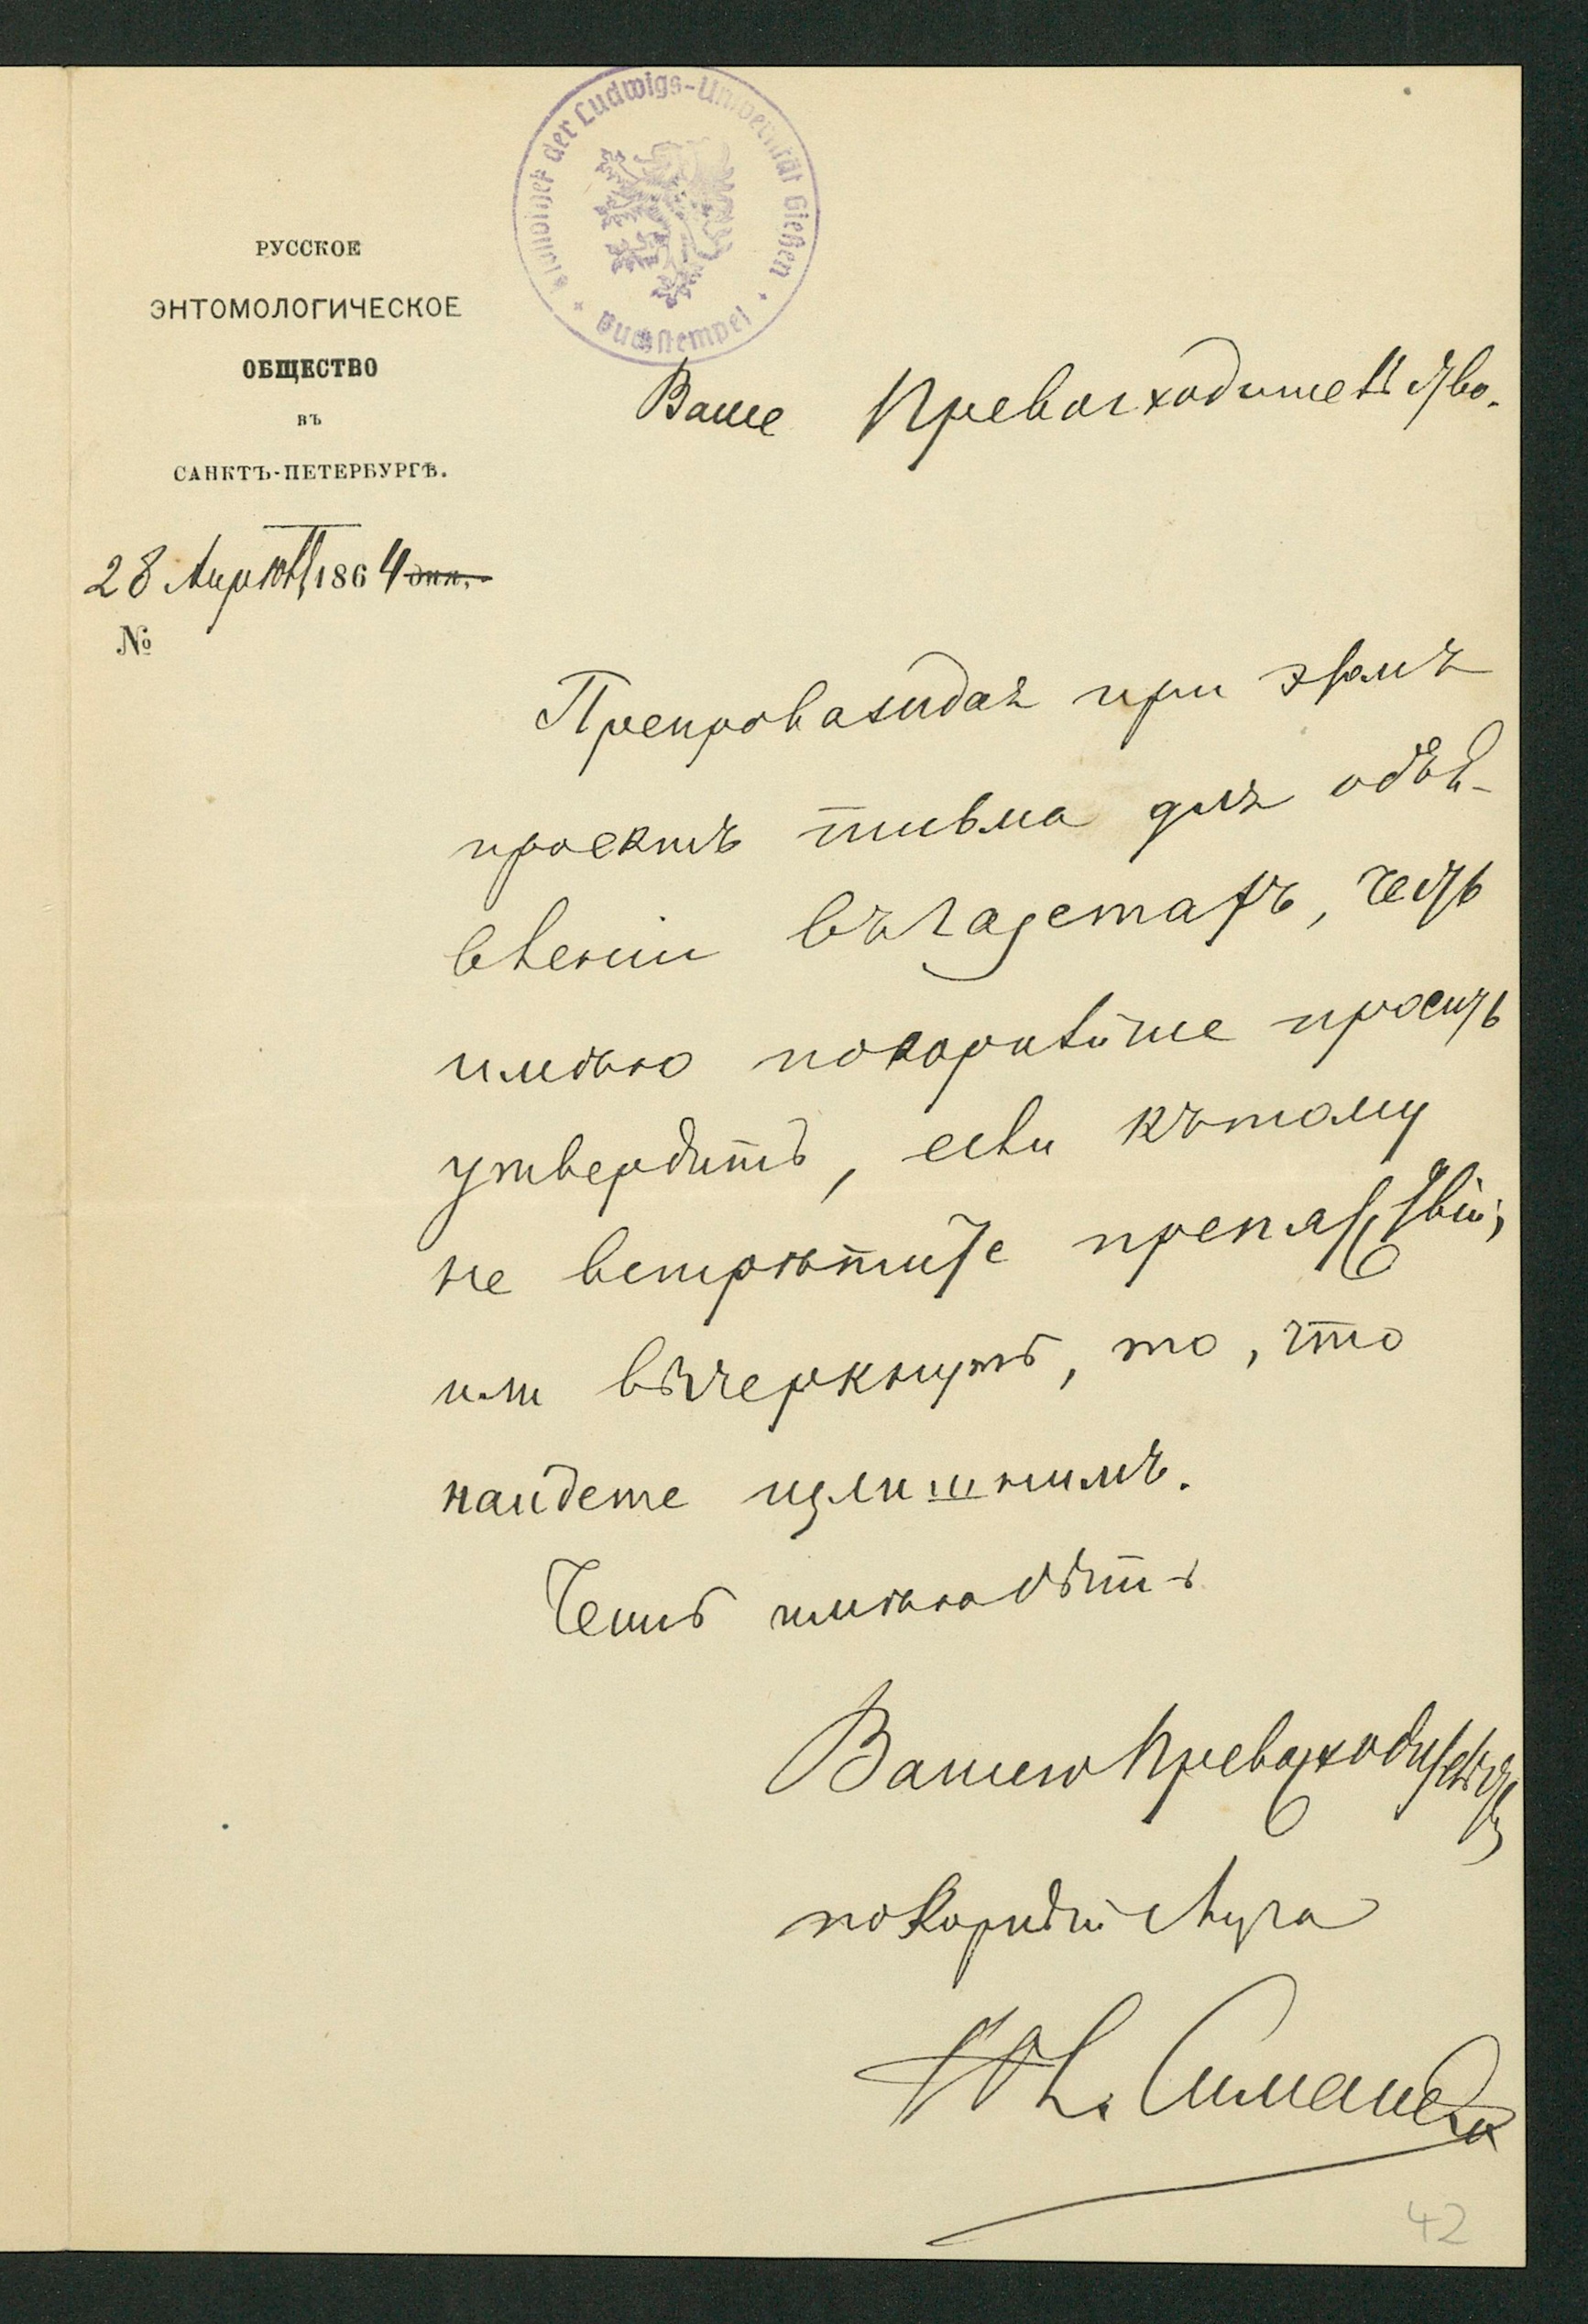 Bibliothek der Ludwigs-Universität Gießen
Buchstempel
РУССКОЕ
ЭНТОМОЛОГИЧЕСКОЕ
ОБЩЕСТВО
ВЪ
САНКТЪ-ПЕТЕРБУРГѢ.
28 Апрѣля 1864 дня.
№
Ваше Превосходительство.
Препровождая при этомъ
проектъ письма для объя-
вленія въ газетахъ, честь
имѣю покорнѣйше просить
утвердить, если къ тому
не встрѣтите препятствій,
или вычеркнуть, то, что
найдете излишнимъ.
Честь имѣю быть
Вашего Превосходительства
покорный слуга
Ю. Симашко
42